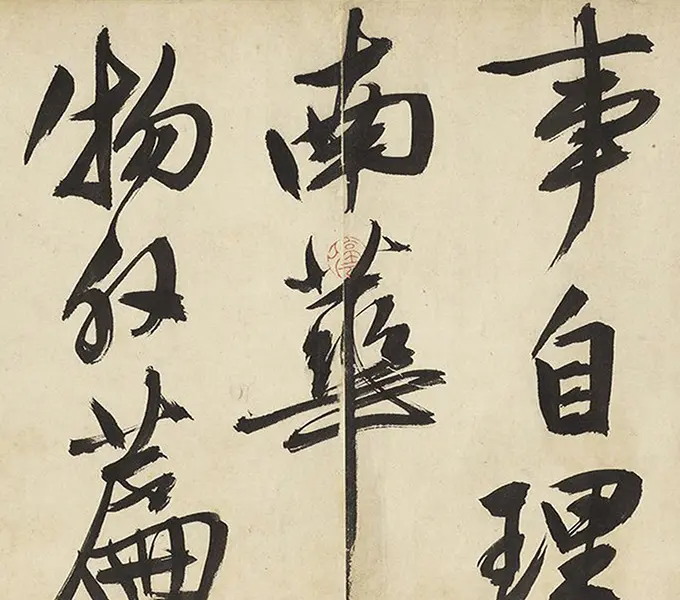 事自理
南華
物外篇